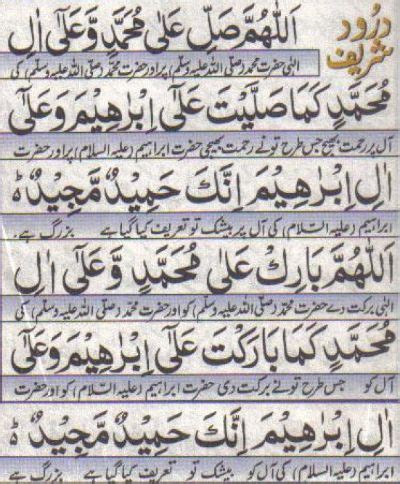 درُود شریف
اَللّٰهُمَّ صَلِّ عَلٰی مُحَمَّدٍ وَّعَلٰٓی اٰلِ
الٰہی حضرت محمد (صلی اللہ علیہ وسلم) پر اور حضرت محمد (صلی اللہ علیہ وسلم) کی
مُحَمَّدٍ كَمَا صَلَّيْتَ عَلٰٓی اِبْرٰهِيْمَ وَعَلٰٓی
آل پر رحمت بھیج جس طرح تو نے رحمت بھیجی حضرت ابراہیم (علیہ السلام) پر اور حضرت
اٰلِ اِبْرٰهِيْمَ اِنَّكَ حَمِيْدٌ مَّجِيْدٌ ؕ
ابراہیم (علیہ السلام) کی آل پر بیشک تو تعریف کیا گیا ہے بزرگ ہے۔
اَللّٰهُمَّ بَارِكْ عَلٰی مُحَمَّدٍ وَّعَلٰٓی اٰلِ
الٰہی برکت دے حضرت محمد (صلی اللہ علیہ وسلم) کو اور حضرت محمد (صلی اللہ علیہ وسلم) کی
مُحَمَّدٍ كَمَا بَارَكْتَ عَلٰٓی اِبْرٰهِيْمَ وَعَلٰٓی
آل کو جس طرح تو نے برکت دی حضرت ابراہیم (علیہ السلام) کو اور حضرت
اٰلِ اِبْرٰهِيْمَ اِنَّكَ حَمِيْدٌ مَّجِيْدٌ ؕ
ابراہیم (علیہ السلام) کی آل کو بیشک تو تعریف کیا گیا ہے بزرگ ہے